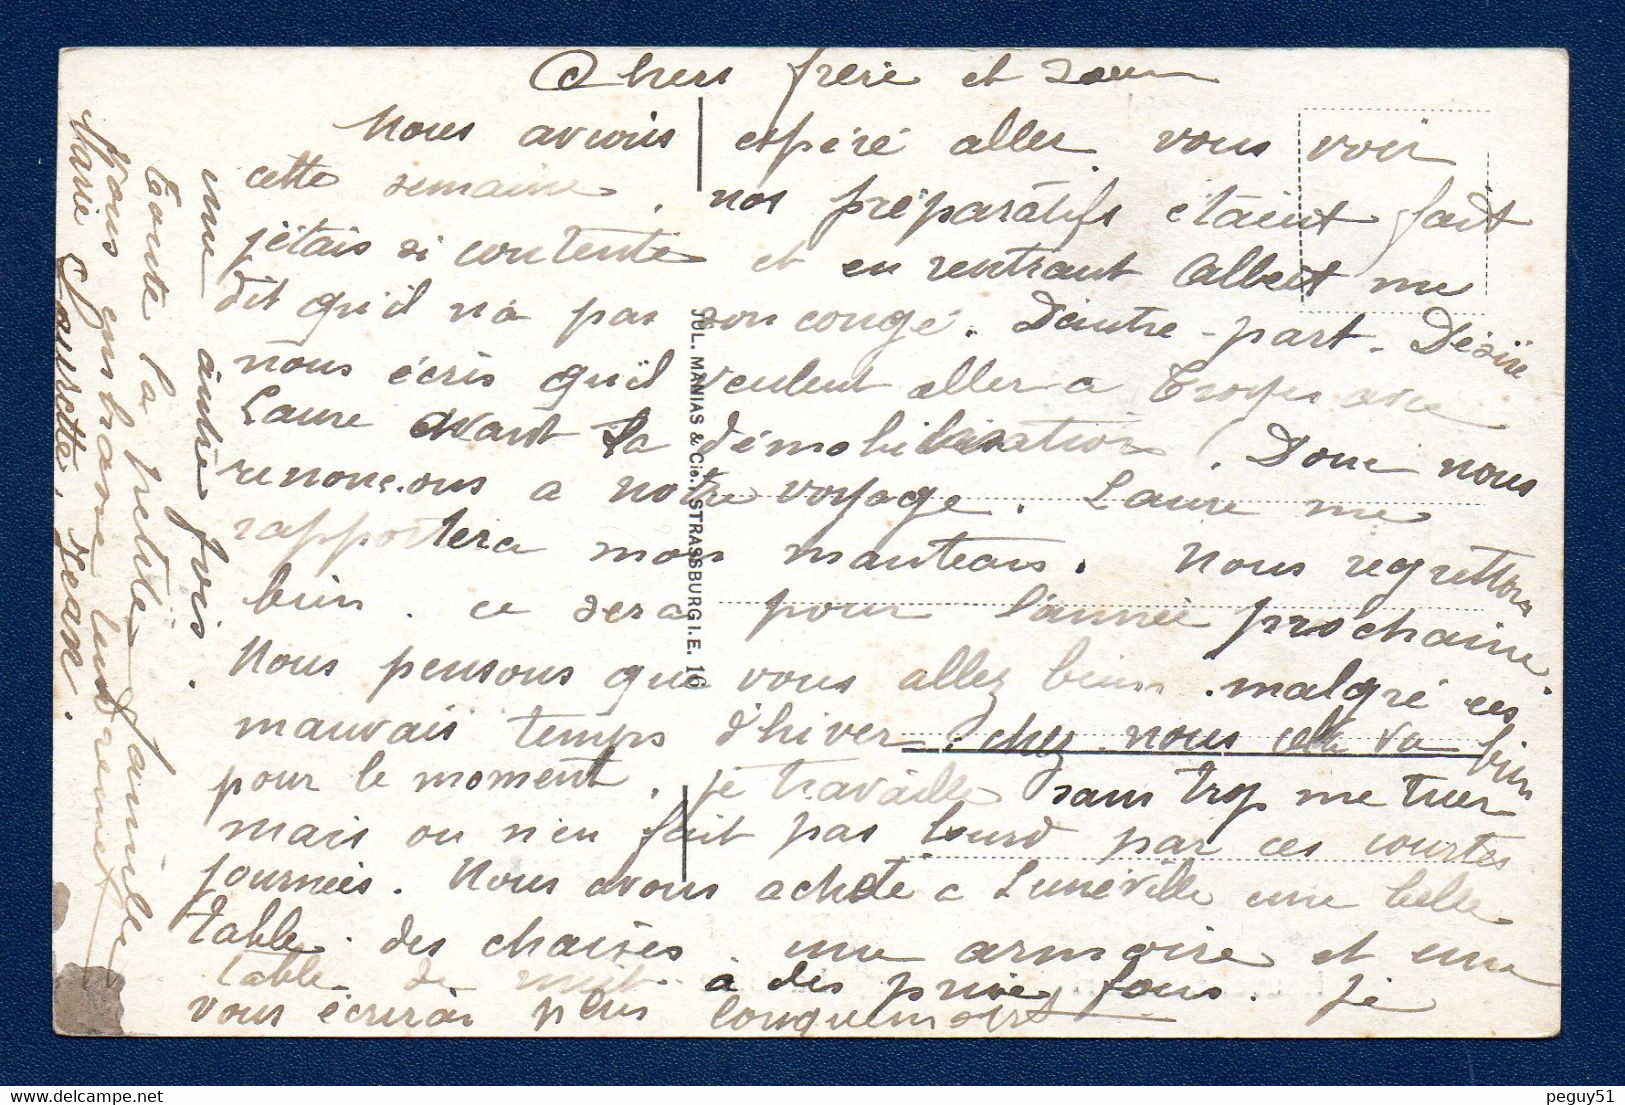 Chers frère et soeur
Nous avions espéré aller vous voir
cette semaine. nos préparatifs étaient fait
j'étais si contente et en rentrant Albert me
dit qu'il n'a pas son congé. D'autre-part. Désiré
nous écris qu'il veulent aller a Troyes avec
Laure avant la démobilisation. Donc nous
renonçons a notre voyage. Laure me
rapportera mon manteau. Nous regrettons
bien. ce sera pour l'année prochaine.
Nous pensons que vous allez bien malgré ces
mauvais temps d'hiver. chez nous cela va bien
pour le moment. je travaille sans trop me tuer
mais on n'en fait pas lourd par ces courtes
journées. Nous avons acheté a Lunéville une belle
table. des chaises une armoire et une
table de nuit a des prix fous. Je
vous écrirai plus longuement
une autre fois.
Toute la petite famille
vous embrasse tendrement
Marie Laurette. Jean.
JUL. MANIAS & Cie., STRASSBURG I. E. 16
peguy51